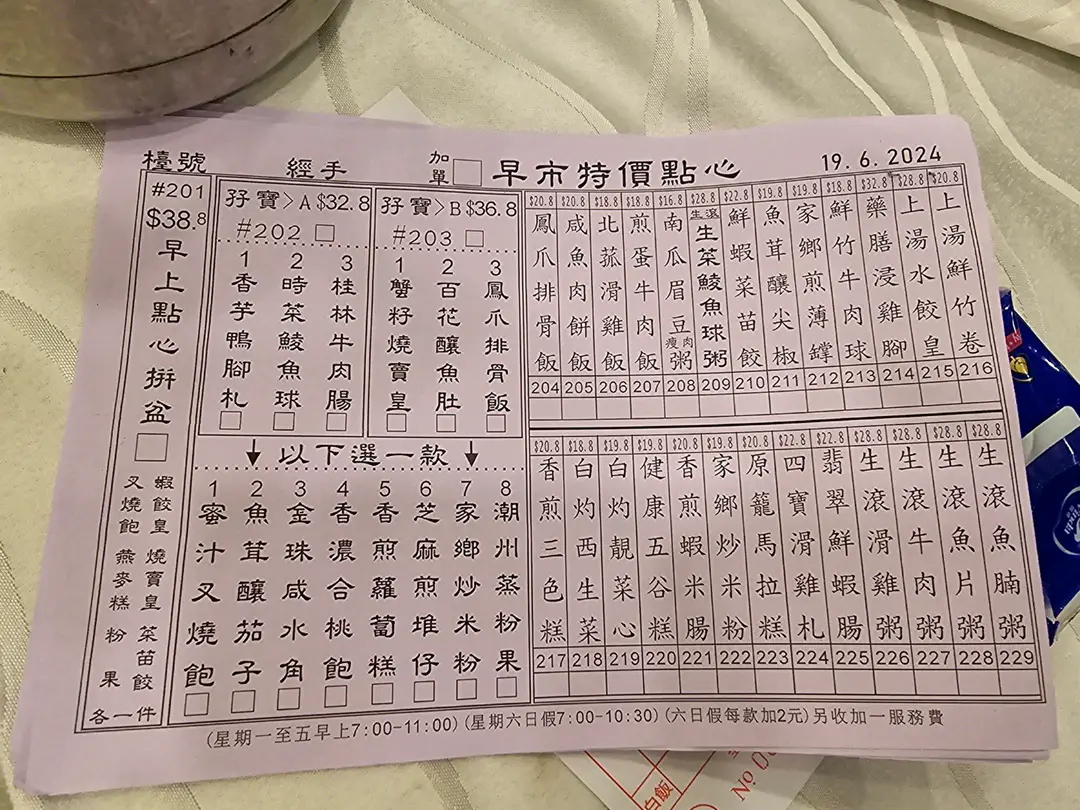 檯號
經手
加單
早市特價點心
19.6.2024
#201
$38.8
早上點心拼盆
叉燒飽
蝦餃皇
燕麥糕
燒賣皇
粉果
菜苗餃
各一件
孖寶>A $32.8
#202
1 香芋鴨腳札
2 時菜鯪魚球
3 桂林牛肉腸
孖寶>B $36.8
#203
1 蟹籽燒賣皇
2 百花釀魚肚
3 鳳爪排骨飯
↓以下選一款↓
1 蜜汁叉燒飽
2 魚茸釀茄子
3 金珠咸水角
4 香濃合桃飽
5 香煎蘿蔔糕
6 芝麻煎堆仔
7 家鄉炒米粉
8 潮州蒸粉果
$20.8 鳳爪排骨飯 204
$20.8 咸魚肉餅飯 205
$18.8 北菰滑雞飯 206
$18.8 煎蛋牛肉飯 207
$16.8 南瓜眉豆瘦肉粥 208
$28.8 生滾生菜鯪魚球粥 209
$22.8 鮮蝦菜苗餃 210
$19.8 魚茸釀尖椒 211
$19.8 家鄉煎薄罉 212
$18.8 鮮竹牛肉球 213
$32.8 藥膳浸雞腳 214
$28.8 上湯水餃皇 215
$20.8 上湯鮮竹卷 216
$20.8 香煎三色糕 217
$18.8 白灼西生菜 218
$19.8 白灼靚菜心 219
$19.8 健康五谷糕 220
$20.8 香煎蝦米腸 221
$19.8 家鄉炒米粉 222
$20.8 原籠馬拉糕 223
$22.8 四寶滑雞札 224
$22.8 翡翠鮮蝦腸 225
$28.8 生滾滑雞粥 226
$28.8 生滾牛肉粥 227
$28.8 生滾魚片粥 228
$28.8 生滾魚腩粥 229
(星期一至五早上7:00-11:00)(星期六日假7:00-10:30)(六日假每款加2元)另收加一服務費
白飯
Nº